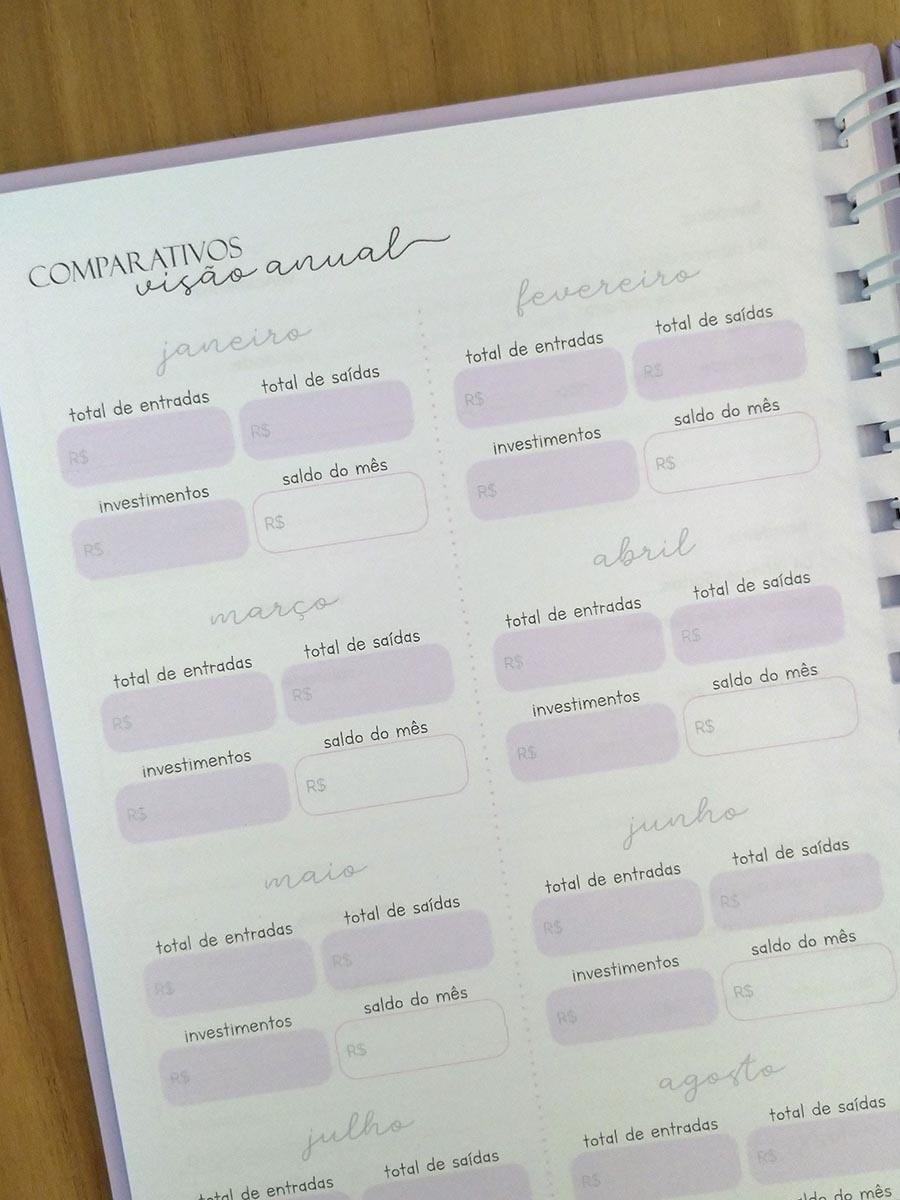 COMPARATIVOS
visão anual
janeiro
total de entradas total de saídas
R$ R$
investimentos saldo do mês
R$ R$
fevereiro
total de entradas total de saídas
R$ R$
investimentos saldo do mês
R$ R$
março
total de entradas total de saídas
R$ R$
investimentos saldo do mês
R$ R$
abril
total de entradas total de saídas
R$ R$
investimentos saldo do mês
R$ R$
maio
total de entradas total de saídas
R$ R$
investimentos saldo do mês
R$ R$
junho
total de entradas total de saídas
R$ R$
investimentos saldo do mês
R$ R$
julho
total de entradas total de saídas
agosto
total de entradas total de saídas
R$ R$
saldo do mês